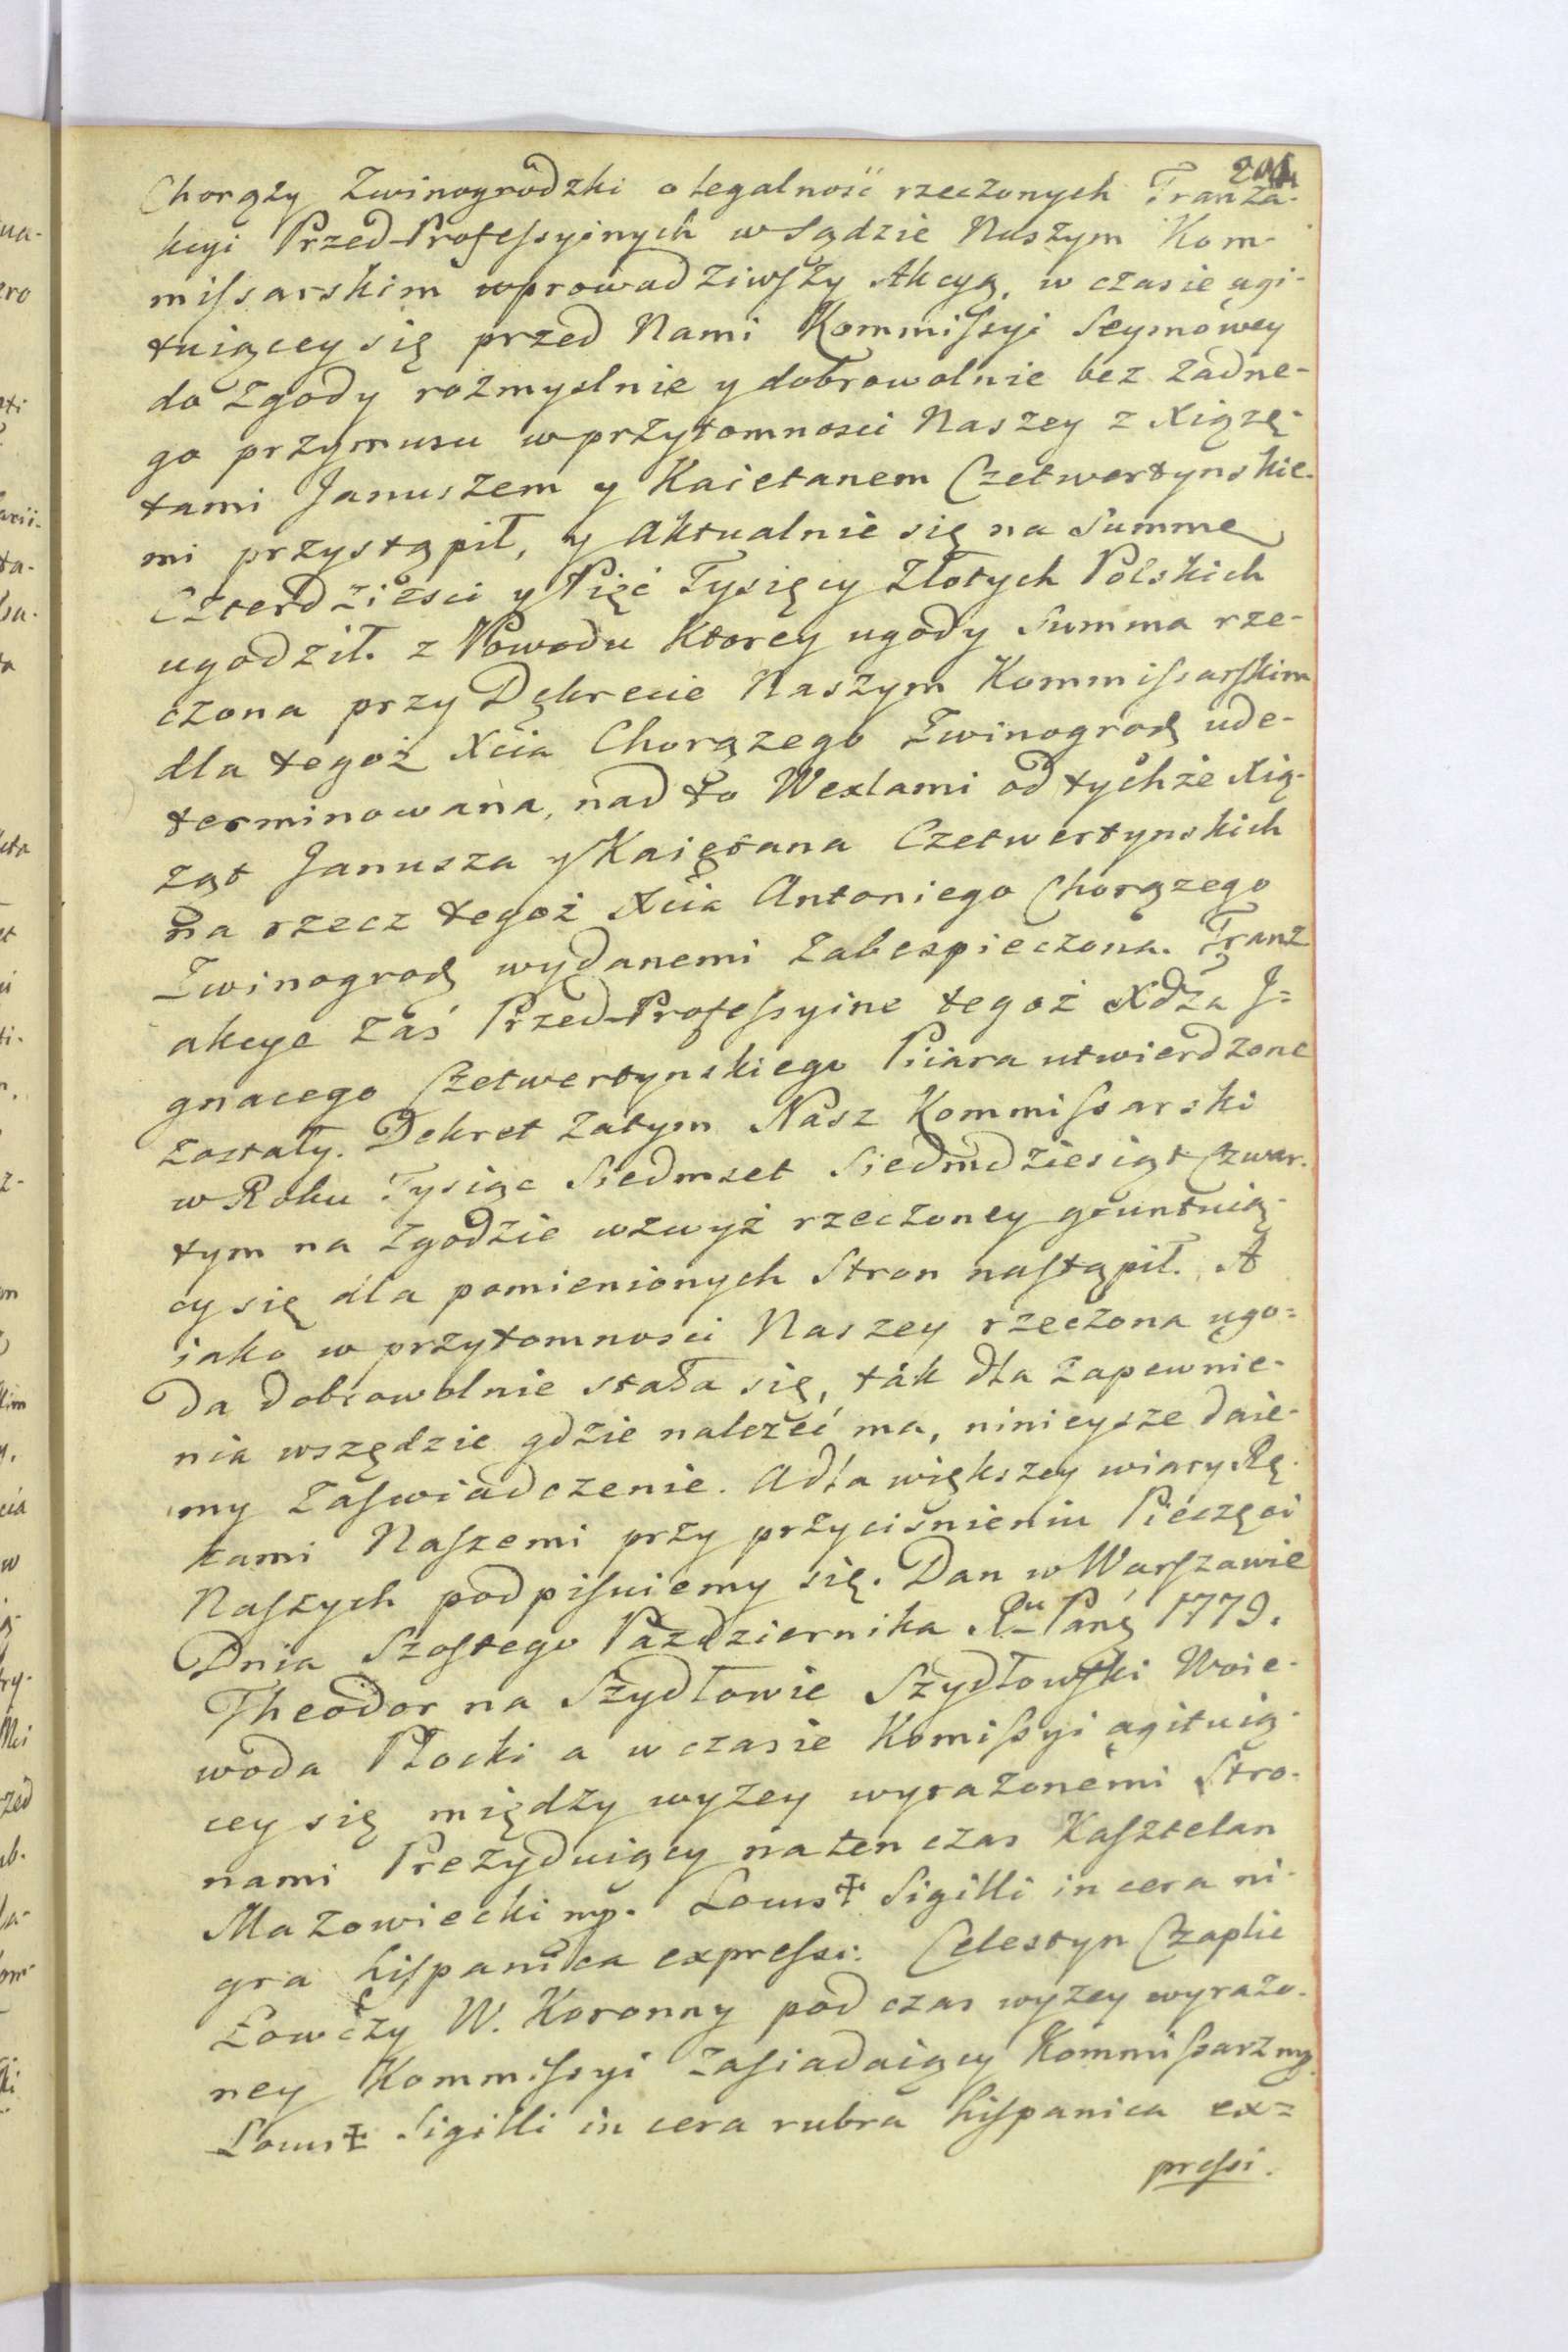 Chorąży Zwinogrodzki o legalność rzeczonych Tranza-
kcyi Przed-Professyinych w Sądzie Naszym Kom-
missarskim wprowadziwszy Akcyą, w czasie agi-
tuiącey się przed Nami Kommissyi Seymowey
do Zgody rozmyslnie y dobrowolnie bez żadne-
go przymusu w przytomnosci Naszey z Xiążę-
tami Januszem y Kaietanem Czetwertynskie-
mi przystąpił, y Aktualnie się na Summę
Czterdziesci y Pięć Tysięcy Złotych Polskich
ugodził. z Powodu Ktorey ugody Summa rze-
czona przy Dekrecie Naszym Kommissarskim
dla tegoż Xcia Chorązego Zwinogrodz ude-
terminowana, nad to Wexlami od tychże Xią-
ząt Janusza y Kaietana Czetwertynskich
na rzecz tegoż Xcia Antoniego Chorązego
Zwinogrodz wydanemi Zabespieczona. Tranz
akcye zaś Przed-Professyine tegoż Xdza J=
gnacego Czetwertynskiego Piiara utwierdzone
zostały. Dekret zatym Nasz Kommissarski
w Roku Tysiąc Siedmset Siedmdziesiąt Czwar-
tym na Zgodzie wzwyż rzeczoney gruntuią-
cy się dla pomienionych Stron nastąpił. A
iako w przytomnosci Naszey rzeczona ugo=
da dobrowolnie stała się, ták dla zapewnie-
nia wszędzie gdzie należeć ma, ninieysze daie-
my Zaswiadczenie. A dla większey wiary Rę-
kami Naszemi przy przyciśnieniu Pieczęci
Naszych podpisuiemy się. Dan w Warszawie
Dnia Szostego Pazdziernika Ru Pang 1779.
Theodor na Szydłowie Szydłowski Woie-
woda Płocki a w czasie Komissyi agituią-
cey się między wyzey wyrażonemi Stro-
nami Prezyduiący na ten czas Kasztelan
Mazowiecki mp. Locus ‡ Sigilli in cera ni-
gra hispanica expressi. Celestyn Czaplic
Łowczy W. Koronny pod czas wyzey wyrażo-
ney Kommissyi Zasiadaiący Kommissarz mp.
Locus ‡ Sigilli in cera rubra hispanica ex=
pressi.